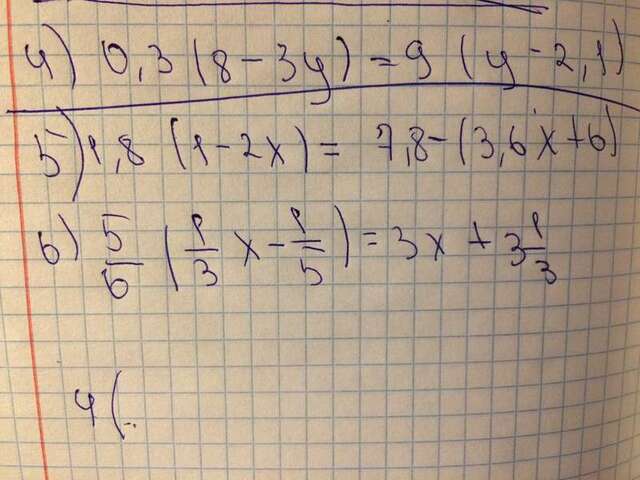 4) 0,3 (8 - 3y) = 9 (y - 2,1)
5) 1,8 (1 - 2x) = 7,8 - (3,6x + 6)
6) 5/6 (1/3 x - 1/5) = 3x + 3 1/3
4 (